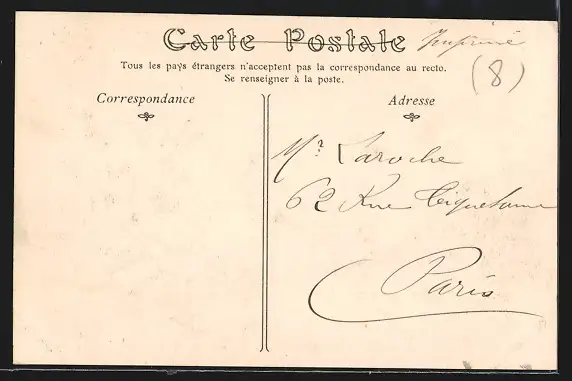 Carte Postale Imprimé
Tous les pays étrangers n'acceptent pas la correspondance au recto.
Se renseigner à la poste.
(8)
Correspondance
Adresse
Mr Laroche
62 Rue Tiquetonne
Paris